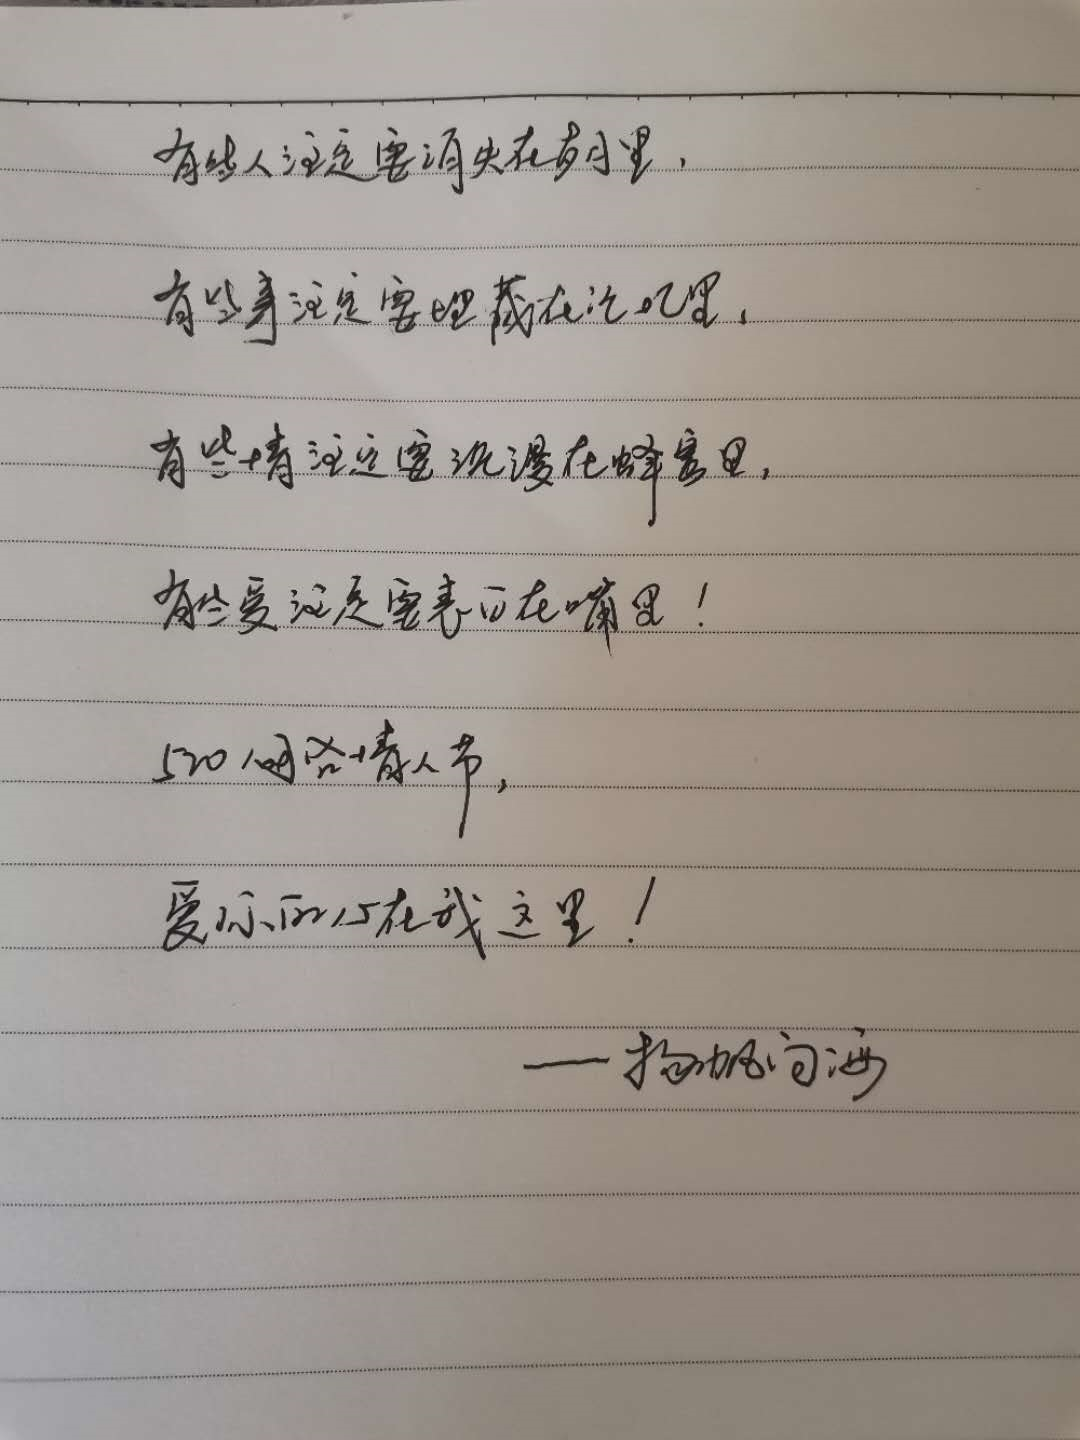 有些人注定要消失在岁月里，
有些事注定要埋藏在记忆里，
有些情注定要沉浸在蜂蜜里，
有些爱注定要表白在嘴里！
520网络情人节，
爱你的心在我这里！
——扬帆向海